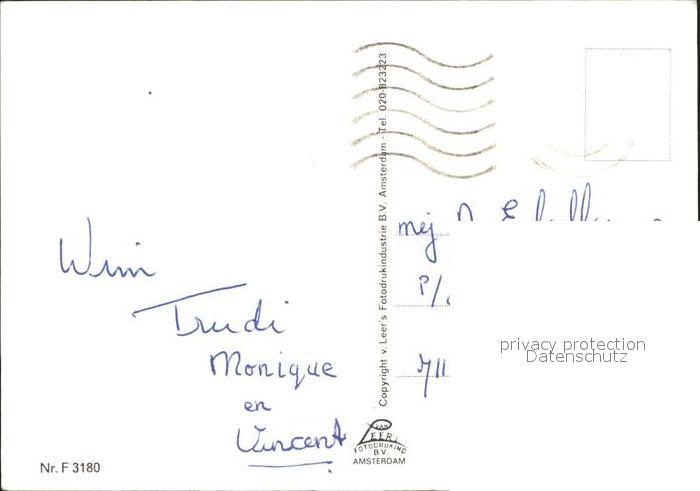 Wim
Trudi
Monique
en
Vincent
Nr. F 3180
Copyright v. Leer's Fotodrukindustrie B.V. Amsterdam - Tel. 020-823223
VAN
LEER'S
FOTODRUKIND
B.V.
AMSTERDAM
mej
P/
privacy protection
Datenschutz